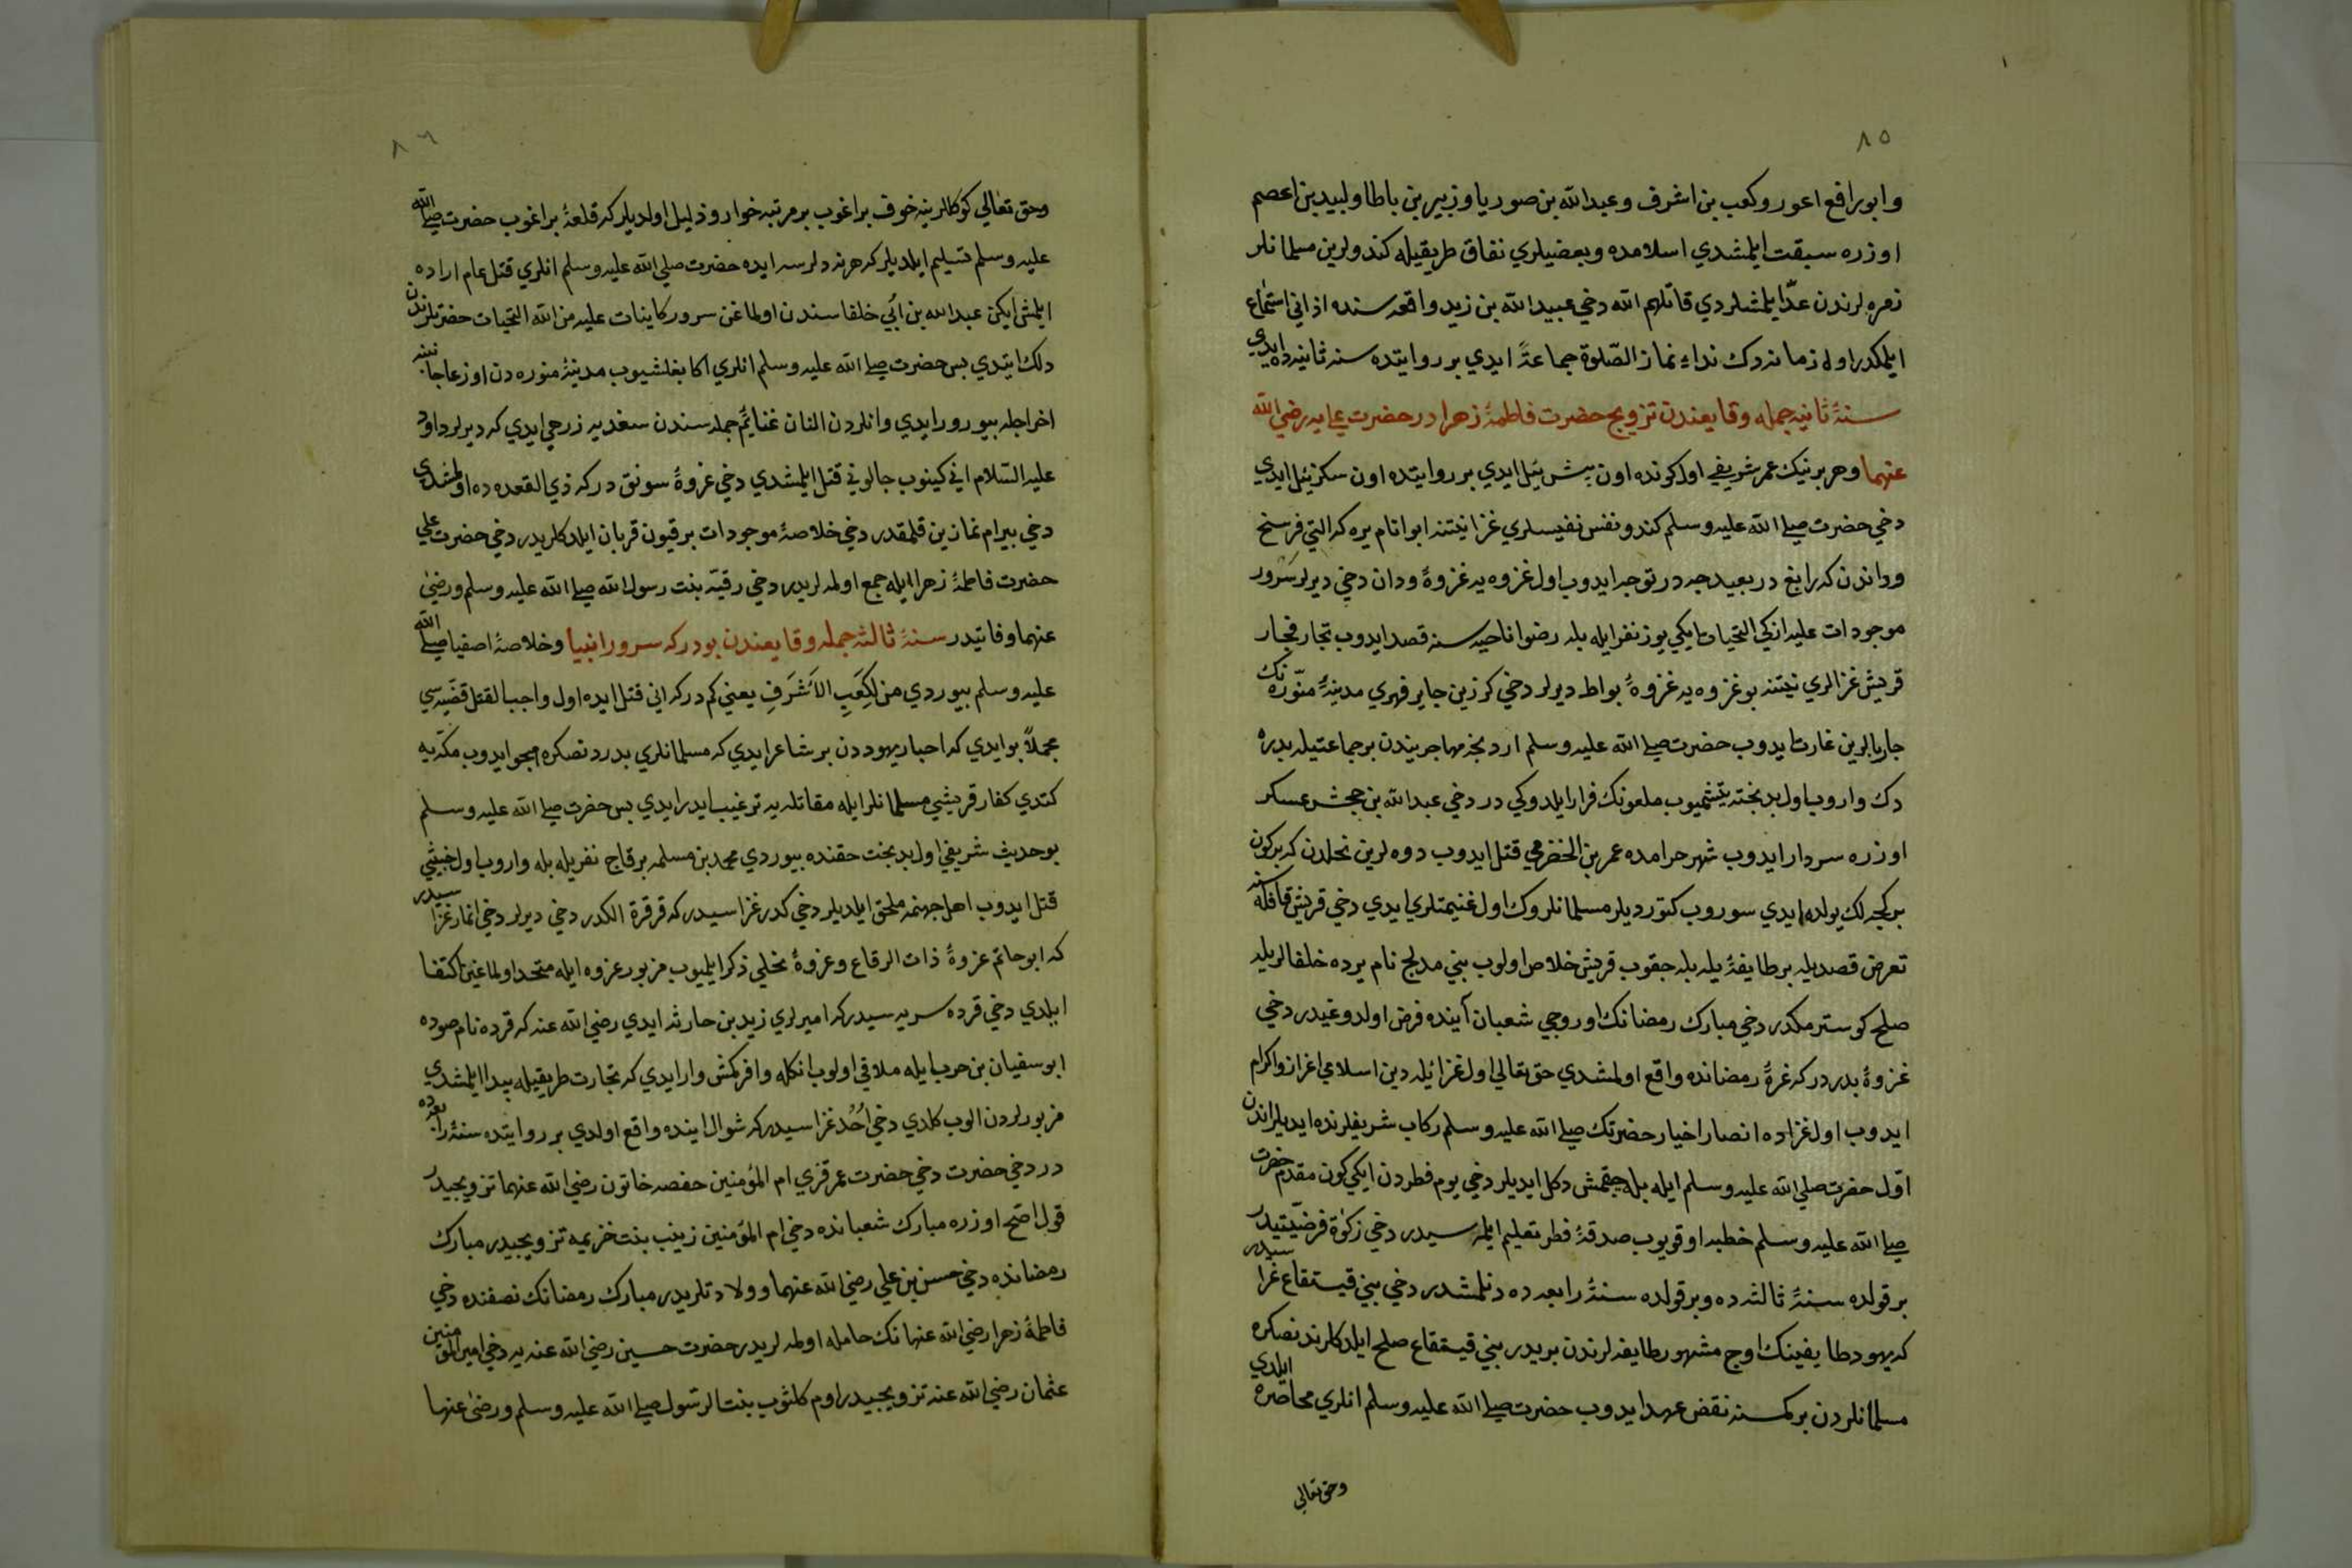 ٨٥
وابورافع اعور وكعب بن اشرف وعبد الله بن صوريا وزبير بن باطا ولبيد بن اعصم
اوزره سبقت ايلمشدي اسلامده وبعضيلري نفاق طريقيله كندولرين مسلمانلر
زمره لرندن عدّ ايلمشلردي قاتلهم الله دخي عبيد الله بن زيد واقعه سنده اذاني استماع
ايلمكدر اول زمانه دك نداء نماز الصّلوة جماعةً ايدي بر روايتده سنه ثانيه ده ايدي
سنۀ ثانيه جمله وقايعندن تزويج حضرت فاطمۀ زهرا در حضرت علي يه رضي الله
عنهما وهر برينك عمر شريفي اول كونده اون بش ييل ايدي بر روايتده اون سكز ييل ايدي
دخي حضرت صلي الله عليه وسلم كندو نفس نفيسلري غزا نيتنه ابوا نام يره كه التي فرسخ
وداندن كه رابغ در بعيدجه در توجه ايدوب اول غزوه يه غزوۀ ودان دخي ديرلر سرور
موجودات عليه ازكي التحيات ايكي يوز نفر ايله بله رضوا ناحيه سنه قصد ايدوب تجار فجار
قريش غزالري نيتنه بو غزوه يه غزوۀ بواط ديرلر دخي كرز بن جابر فهري مدينۀ منوّره نك
جاربالرين غارت ايدوب حضرت صلي الله عليه وسلم اردنجه مهاجريندن بر جماعتيله بدره
دك واروب اول بدبخته يتشميوب ملعونك فرار ايلدوكي در دخي عبد الله بن جحش عسكر
اوزره سردار ايدوب شهر حرامده عمر بن الحضرمي قتل ايدوب دوه لرين نخلدن كه بر كون
بر كيجه لك يولده ايدي سوروب كتورديلر مسلمانلروك اول غنيمتلري ايدي دخي قريش قافله سنه
تعرض قصديله بر طايفۀ يله بله جقوب قريش خلاص اولوب بني مدلج نام يرده خلفالريله
صلح كوسترمكدر دخي مبارك رمضانك اوروجي شعبان آينده فرض اولدوغيدر دخي
غزوۀ بدر در كه غرۀ رمضانده واقع اولمشدي حق تعالي اول غزا ئيله دين اسلامي اعزاز واكرام
ايدوب اول غزاده انصار اخيار حضرتك صلي الله عليه وسلم ركاب شريفلرنده ايديلر اندن
اوّل حضرت صلي الله عليه وسلم ايله بله جقمش دكل ايديلر دخي يوم فطردن ايكي كون مقدم حضرت
صلي الله عليه وسلم خطبه اوقويوب صدقۀ فطر تعليم ايلمه سيدر دخي زكوٰة فرضيّتيدر
بر قولده سنۀ ثالثه ده وبر قولده سنۀ رابعه ده دنلمشدر دخي بني قينقاع غزا سيدر
كه يهود طايفينك اوج مشهور طايفه لرندن بريدر بني قينقاع صلح ايلدكلرندنصكره
مسلمانلردن بر كمسنه نقض عهد ايدوب حضرت صلي الله عليه وسلم انلري محاصره ايلدي
وحق تعالي
٨٦
وحق تعالي كوكللرينه خوف براغوب بر مرتبه خوار وذليل اولديلر كه قلعۀ براغوب حضرت صلي الله
عليه وسلم تسليم ايلديلر كه هر نه دلرسه ايده حضرت صلي الله عليه وسلم انلري قتل عام اراده
ايلمش ايكن عبد الله بن ابي خلفا سندن اولماغن سرور كاينات عليه من الله التحيات حضرتلرندن
دلك ايتدي بس حضرت صلي الله عليه وسلم انلري اكا بغلشيوب مدينۀ منوره دن اوزعاجانبنه
اخراجله بيورور ايدي وانلردن النان غنايم جمله سندن سغديه زرحي ايدي كه ديرلر داود
عليه السّلام اني كينوب جالوتي قتل ايلمشدي دخي غزوۀ سويق در كه ذي القعده ده اولمشدي
دخي بيرام نمازين قلمقدر دخي خلاصۀ موجودات بر قيون قربان ايلدكلريدر دخي حضرت علي
حضرت فاطمۀ زهرا ايله جمع اولمه لريدر دخي رقيّه بنت رسول الله صلي الله عليه وسلم ورضي
عنهما وفاتيدر سنۀ ثالثه جمله وقايعندن بودر كه سرور انبيا وخلاصۀ اصفيا صلي الله
عليه وسلم بيوردي من لِكَعبِ الاَشرَفِ يعني كم در كه اني قتل ايده اول واجب القتل قضيه سي
مجملاً بو ايدي كه احبار يهوددن بر شاعر ايدي كه مسلمانلري بدردنصكره هجو ايدوب مكّه يه
كتدي كفار قريشي مسلمانلر ايله مقاتله يه ترغيب ايدر ايدي بس حضرت صلي الله عليه وسلم
بو حديث شريفي اول بدبخت حقنده بيوردي محمد بن مسلمه بر قاج نفريله بله واروب اول خبيثي
قتل ايدوب اهل جهنمه ملحق ايلديلر دخي كدر غزاسيدر كه قرقرة الكدر دخي ديرلر دخي انمار غزا سيدر
كه ابو حاتم غزوۀ ذات الرقاع وغزوۀ نخلي ذكر ايليوب مزبور غزوه ايله متحد اولماغين اكتفا
ايلدي دخي قرده سريه سيدر كه اميرلري زيد بن حارثه ايدي رضي الله عنه كه قرده نام صوده
ابو سفيان بن حرب ايله ملاقي اولوب انكله وافر كمش وار ايدي كه تجارت طريقيله پيدا ايلمشدي
مزبورلردن الوب كلدي دخي اُحُد غزاسيدر كه شوال اينده واقع اولدي بر روايتده سنۀ رابعه ده
در دخي حضرت دخي حضرت عمر قزي ام المؤمنين حفصه خاتون رضي الله عنهما تزويجيدر
قول اصّح اوزره مبارك شعبانده دخي ام المؤمنين زينب بنت خزيمه تزويجيدر مبارك
رمضانده دخي حسن بن علي رضي الله عنهما وولادتلريدر مبارك رمضانك نصفنده دخي
فاطمۀ زهرا رضي الله عنهانك حامله اولمه لريدر حضرت حسين رضي الله عنه يه دخي امير المؤمنين
عثمان رضي الله عنه تزويجيدر اوم كلثوب بنت الرسول صلي الله عليه وسلم ورضي عنها